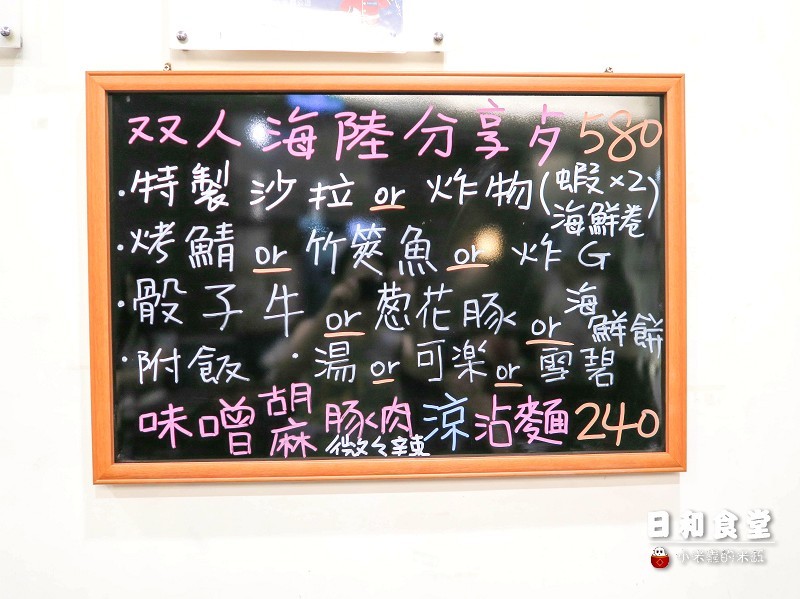 双人海陸分享歺580
·特製沙拉or炸物(蝦×2海鮮卷)
·烤鯖or竹筴魚or炸G
·骰子牛or葱花豚or海鮮餅
·附飯·湯or可楽or雪碧
味噌胡麻豚肉涼沾麵240
微々辣
日和食堂
小米蟲的米缸